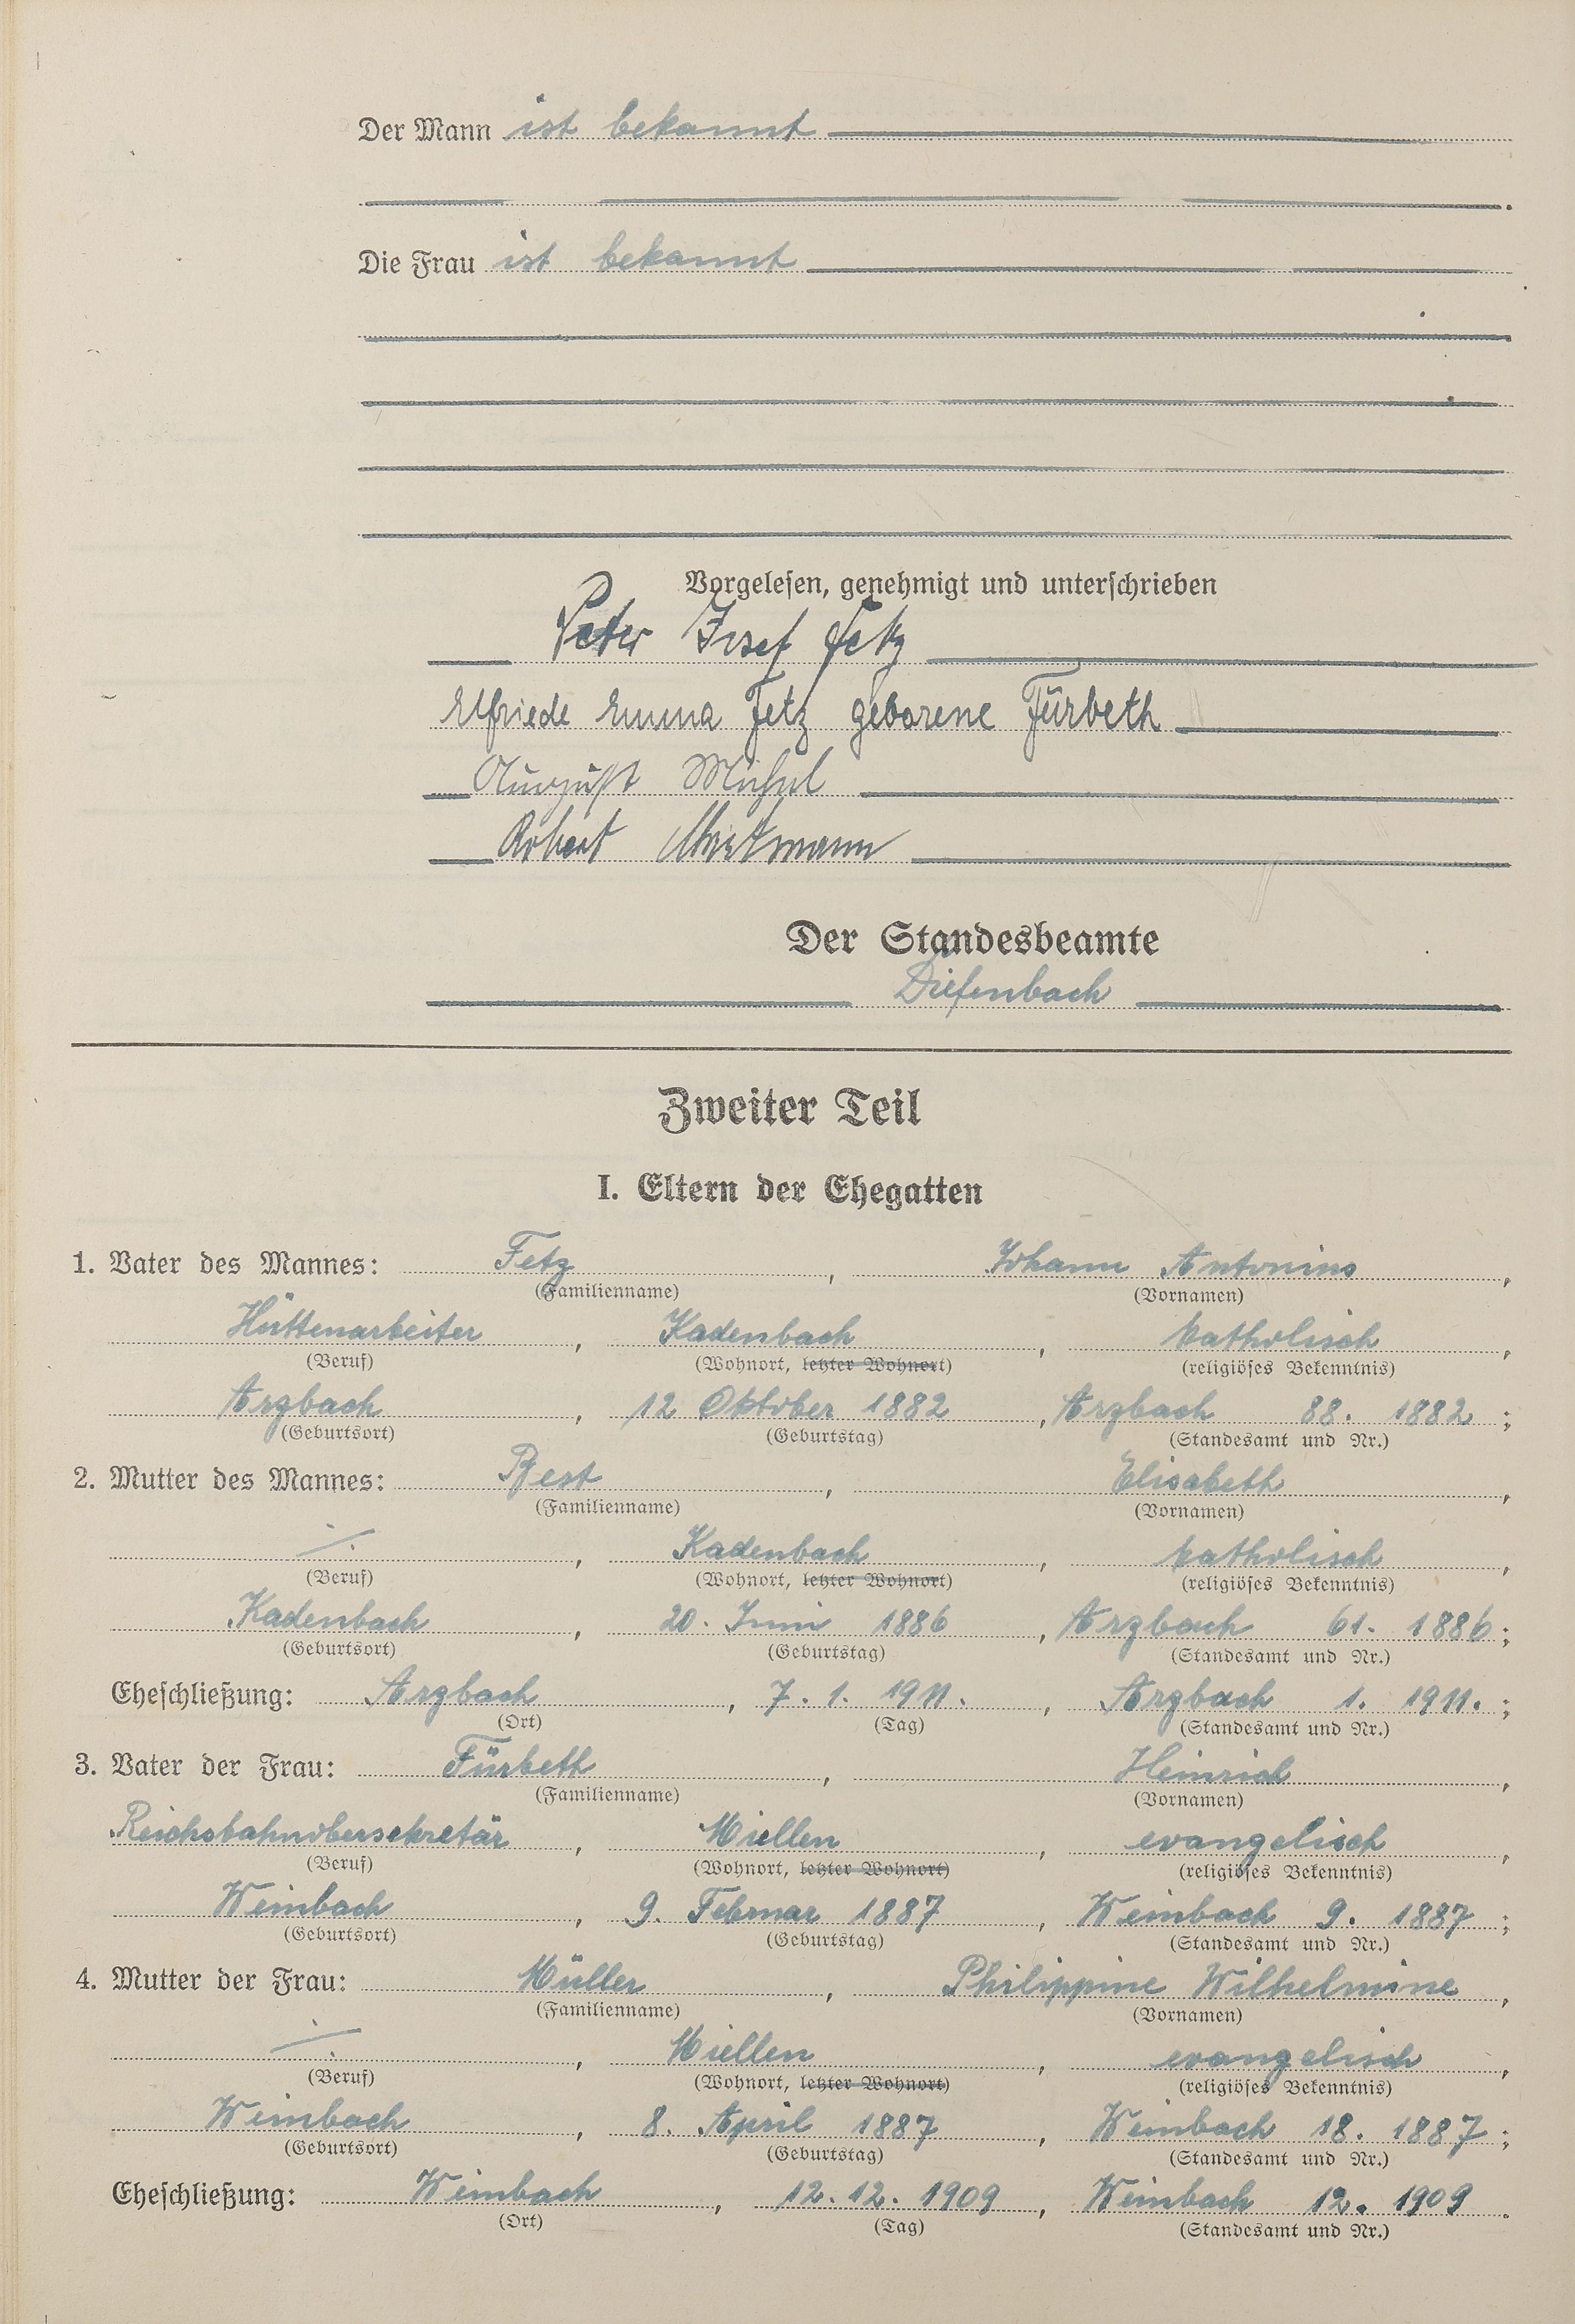 Der Mann ist bekannt
Die Frau ist bekannt
Vorgelesen, genehmigt und unterschrieben
Peter Josef Fetz
Elfriede Emma Fetz geborene Fürbeth
August Michel
Robert
Der Standesbeamte
Diefenbach
Zweiter Teil
I. Eltern der Ehegatten
1. Vater des Mannes: Fetz, Johann Antonius,
(Familienname) (Vornamen)
Hüttenarbeiter, Kadenbach, katholisch,
(Beruf) (Wohnort, letzter Wohnort) (religiöses Bekenntnis)
Arzbach, 12 Oktober 1882, Arzbach 88. 1882;
(Geburtsort) (Geburtstag) (Standesamt und Nr.)
2. Mutter des Mannes: , Elisabeth,
(Familienname) (Vornamen)
./., Kadenbach, katholisch,
(Beruf) (Wohnort, letzter Wohnort) (religiöses Bekenntnis)
Kadenbach, 20. Juni 1886, Arzbach 61. 1886;
(Geburtsort) (Geburtstag) (Standesamt und Nr.)
Eheschließung: Arzbach, 7. 1. 1911., Arzbach 1. 1911.;
(Ort) (Tag) (Standesamt und Nr.)
3. Vater der Frau: Fürbeth, Heinrich,
(Familienname) (Vornamen)
Reichsbahnobersekretär, Miellen, evangelisch,
(Beruf) (Wohnort, letzter Wohnort) (religiöses Bekenntnis)
Weinbach, 9. Februar 1887, Weinbach 9. 1887;
(Geburtsort) (Geburtstag) (Standesamt und Nr.)
4. Mutter der Frau: Müller, Philippine Wilhelmine,
(Familienname) (Vornamen)
./., Miellen, evangelisch,
(Beruf) (Wohnort, letzter Wohnort) (religiöses Bekenntnis)
Weinbach, 8. April 1887, Weinbach 18. 1887;
(Geburtsort) (Geburtstag) (Standesamt und Nr.)
Eheschließung: Weinbach, 12. 12. 1909, Weinbach 12. 1909.
(Ort) (Tag) (Standesamt und Nr.)